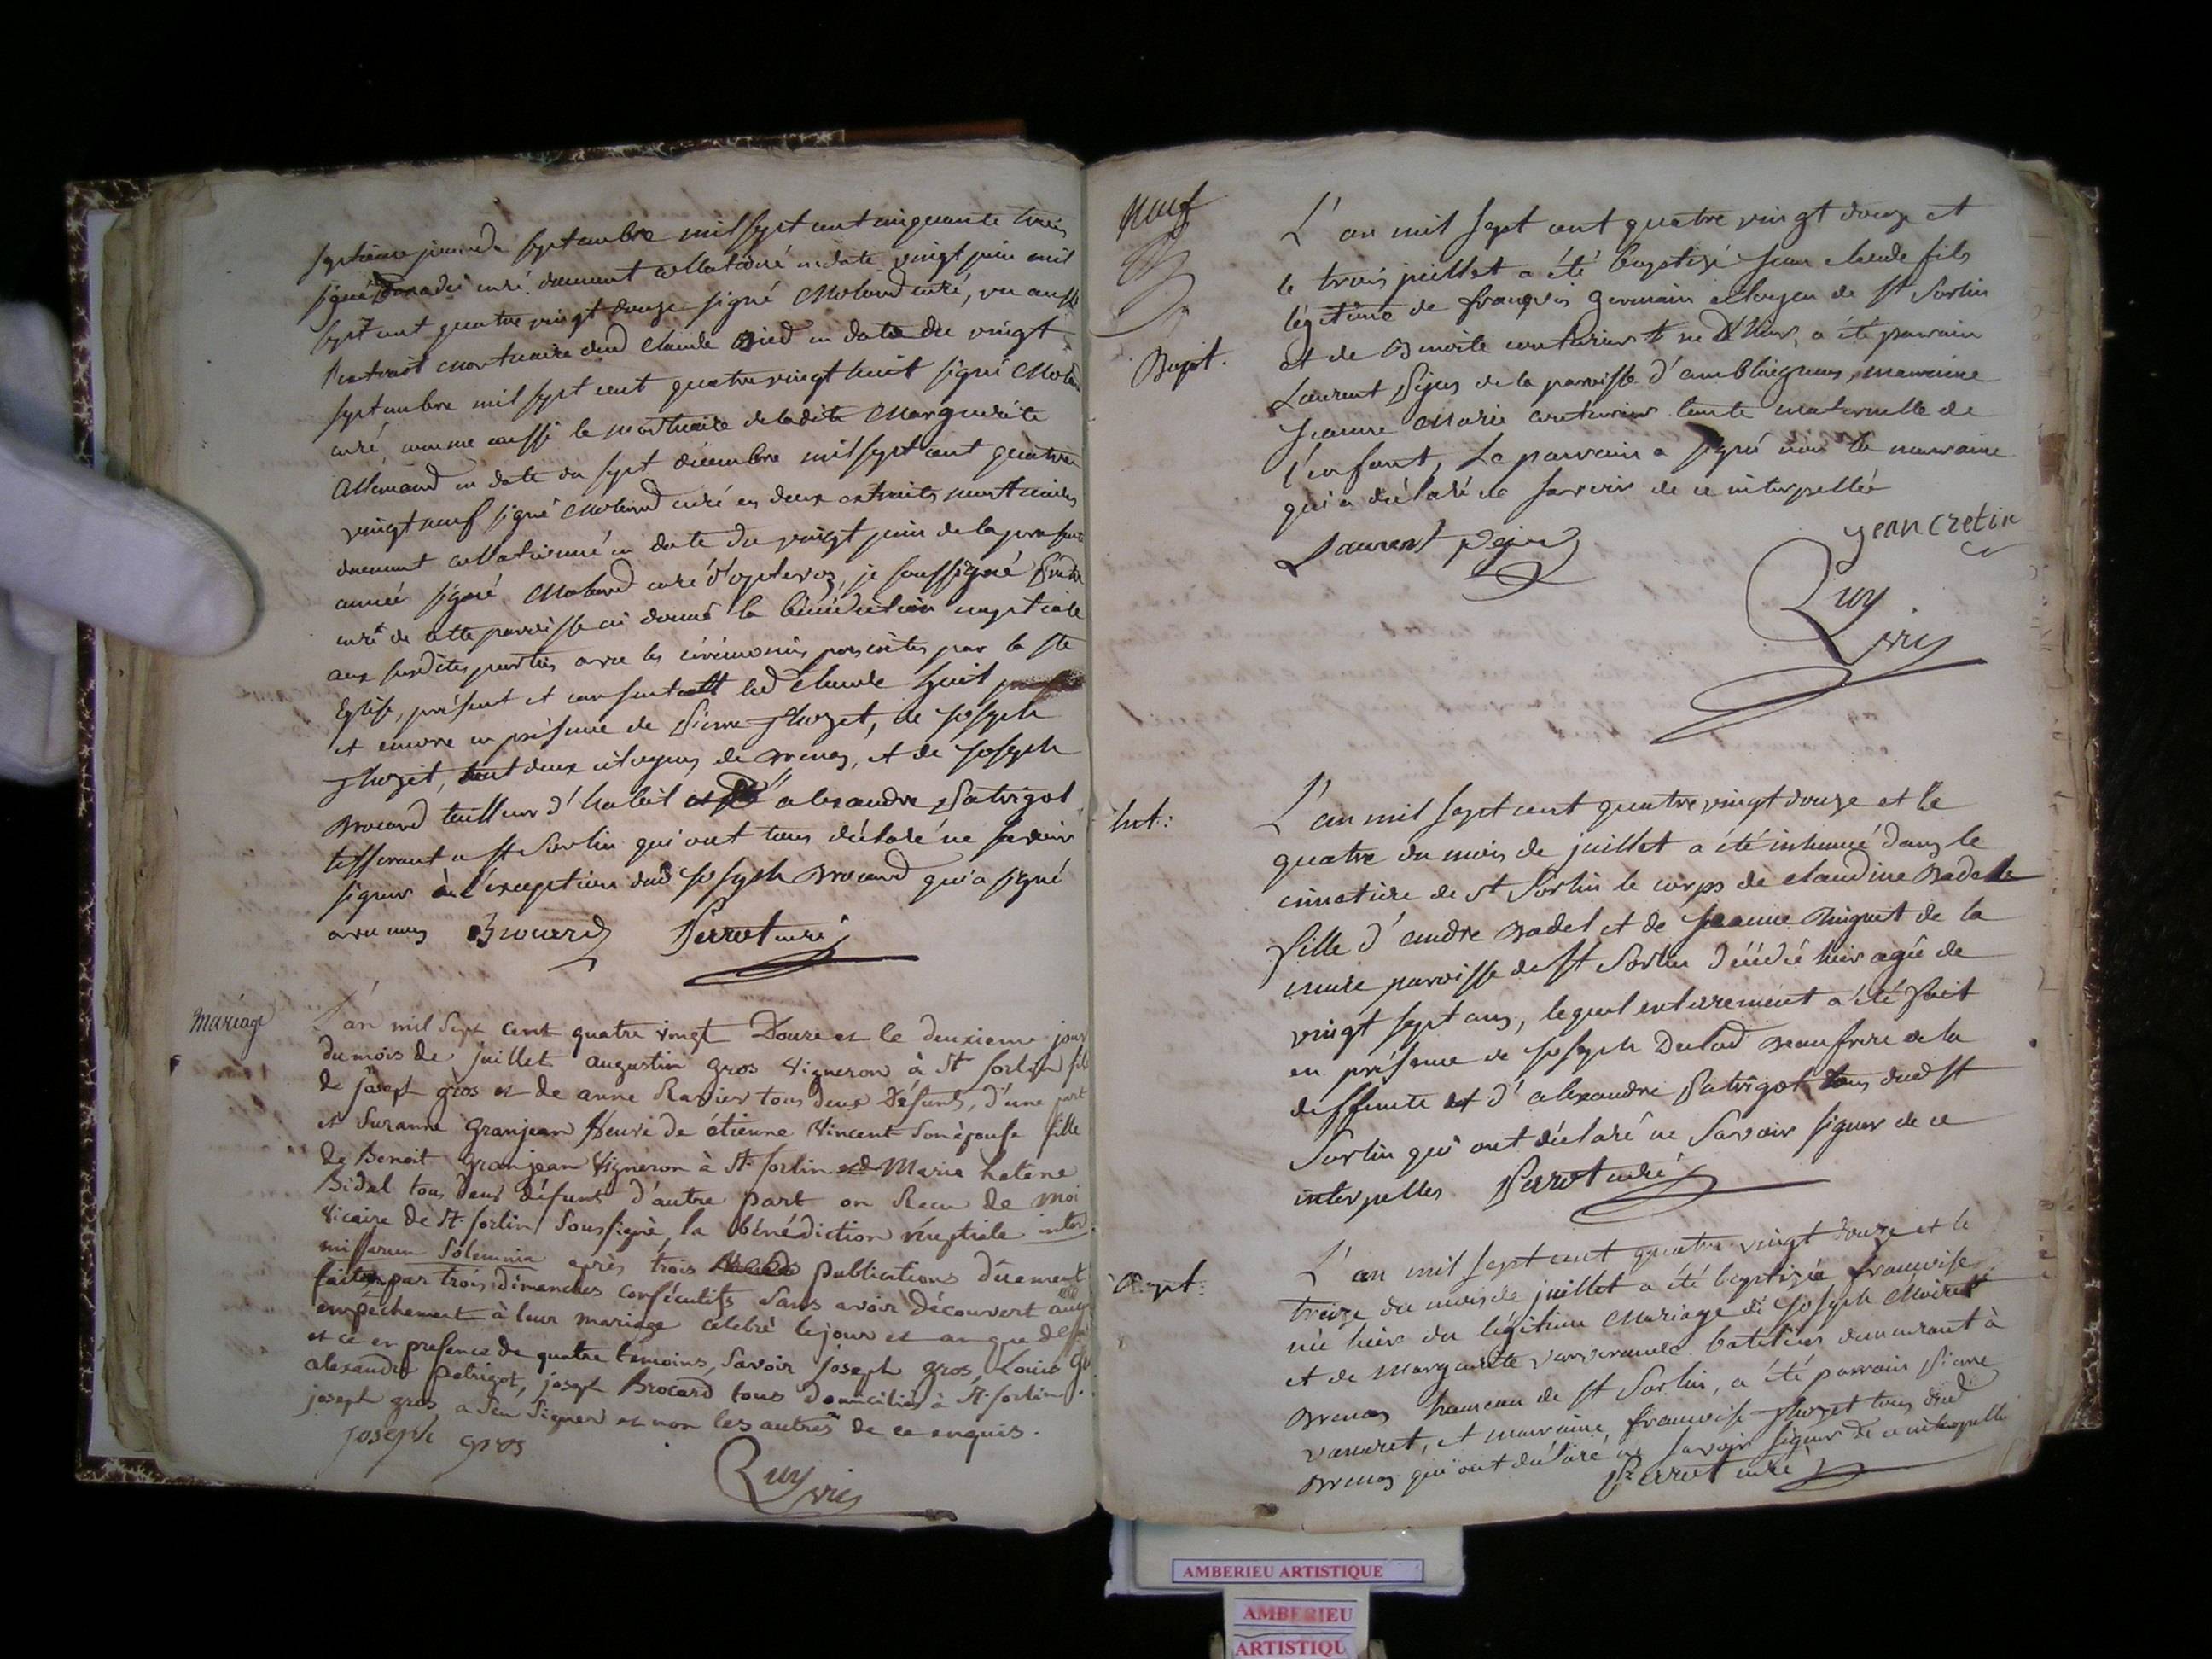 septième jour de septembre mil sept cent cinquante trois
signé curé duement collationné en date vingt juin mil
sept cent quatre vingt douze signé Moland curé, vu aussi
l'extrait mortuaire dud Claude en date du vingt
septembre mil sept cent quatre vingt huit signé Moland
curé, comme aussi le mortuaire de ladite Marguerite
Allemand en date du sept décembre mil sept cent quatre
vingt neuf signé Moland curé es deux extraits mortuaires
duement collationné en date du vingt juin de la presente
année signé Moland curé d'optevoz, je soussigné
curé de cette paroisse ai donné la bénédiction nuptiale
aux susdites parties avec les cérémonies prescrites par la ste
Eglise, présent et consentant led Claude
et encore en présence de Pierre Thozet, de Joseph
Thozet, tout deux citoyens de Brenas, et de Joseph
Brocard tailleur d'habit alexandre Patrigot
tisserant a St Sorlin qui ont tous déclaré ne savoir
signer à l'exception dud Joseph Brocard qui a signé
avec nous Brocard Perrot curé
Mariage
L'an mil Sept Cent quatre vingt Douze et le deuxieme jour
du mois de juillet augustin gros Vigneron à St sorlin fils
de joseph gros et de anne Ravier tous deux Défunts, d'une part
et Suzanne Granjean Veuve de étienne Vincent Son épouse fille
de Benoit Granjean Vigneron à St. Sorlin et Marie helene
Bidal tous deux défunt d'autre part on Recu de moi
Vicaire de St. Sorlin Soussigné, la bénédiction nuptiale inter
missarum Solemnia après trois publications duement
faites par trois dimanches consécutifs Sans avoir découvert aucun
empêchement à leur mariage celebré le jour et an que dessus
et ce en presence de quatre temoins, Savoir joseph gros, Louis
alexandre Patrigot, joseph Brocard tous domiciliés à St. Sorlin.
joseph gros a Seu Signer et non les autres de ce enquis.
joseph gros
Ruy vic
neuf
Bapt.
L'an mil sept cent quatre vingt douze et
le trois juillet a été baptisé Jean claude fils
légitime de françois Germain citoyen de St Sorlin
et de Benoite couturier né d'hier, a été parrain
Laurent Pejus de la paroisse d'amblagnieu, marraine
Jeanne Marie couturier tante maternelle de
l'enfant, Le parrain a signé non la marraine
qui a déclaré ne savoir de ce interpellée
Laurent Pejus
jean cretin
Ruy
vic
Int:
L'an mil sept cent quatre vingt douze et le
quatre du mois de juillet a été inhumé dans le
cimetière de St Sorlin le corps de claudine Badel
fille d'andre Badel et de Jeanne Huguet de la
meme paroisse de St Sorlin décédé hier agée de
vingt sept ans, lequel enterrement a été fait
en présence de Joseph Beaufrere de la
deffunte et d'alexandre Patrigot tous dud St
Sorlin qui ont déclaré ne Savoir signer de ce
interpelles Perrot curé
Bapt:
L'an mil sept cent quatre vingt douze et le
treize du mois de juillet a été baptisée francoise
née hier du légitime Mariage de Joseph
et de Marguerite batelier demeurant à
Brenas hameau de St Sorlin, a été parrain Pierre
Vanaret, et marraine francoise Thozet tous dud
Brenas qui ont déclaré ne savoir signer de ce interpellé
Perrot curé
AMBERIEU ARTISTIQUE
AMBERIEU
ARTISTIQU